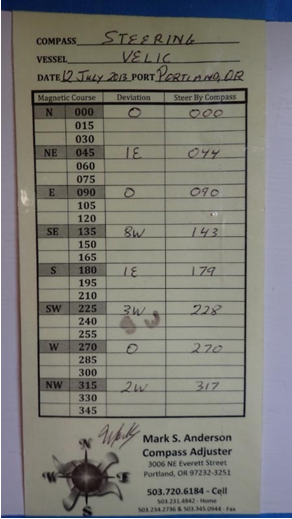 COMPASS STEERING
VESSEL VELIC
DATE 12 JULY 2013 PORT PORTLAND, OR
Magnetic Course Deviation Steer By Compass
N 000 0 000
015
030
NE 045 1E 044
060
075
E 090 0 090
105
120
SE 135 8W 143
150
165
S 180 1E 179
195
210
SW 225 3W 228
240
255
W 270 0 270
285
300
NW 315 2W 317
330
345
Mark S. Anderson
Compass Adjuster
3006 NE Everett Street
Portland, OR 97232-3251
503.720.6184 - Cell
503.231.4842 - Home
503.234.2736 & 503.345.0944 - Fax
N
W E
S